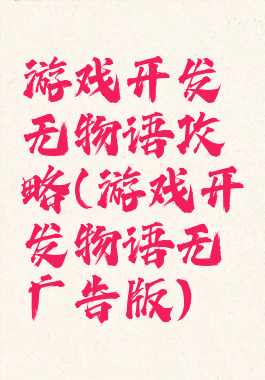 游戏开发
无物语攻
略(游戏开
发物语无
广告版)